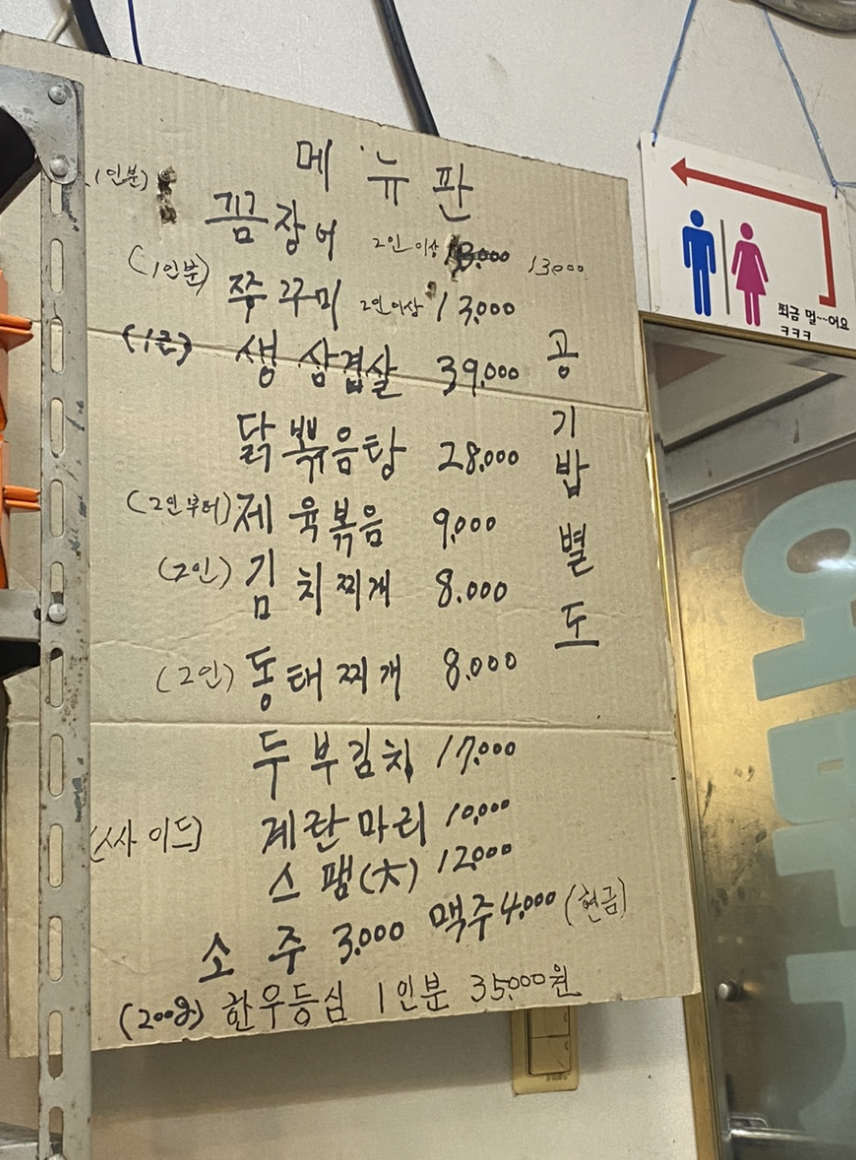 메뉴판
(1인분) 꼼장어 2인이상 13.000 13000
(1인분) 쭈꾸미 2인이상 13.000
(1근) 생삼겹살 39.000
닭볶음탕 28.000
(2인부터) 제육볶음 9.000
(2인) 김치찌개 8.000
(2인) 동태찌개 8.000
두부김치 17.000
(싸이드) 계란마리 10.000
스팸(大) 12.000
소주 3.000 맥주 4.000 (현금)
(200g) 한우등심 1인분 35.000원
공기밥별도
쬐금 멀~~어요
ㅋㅋㅋ